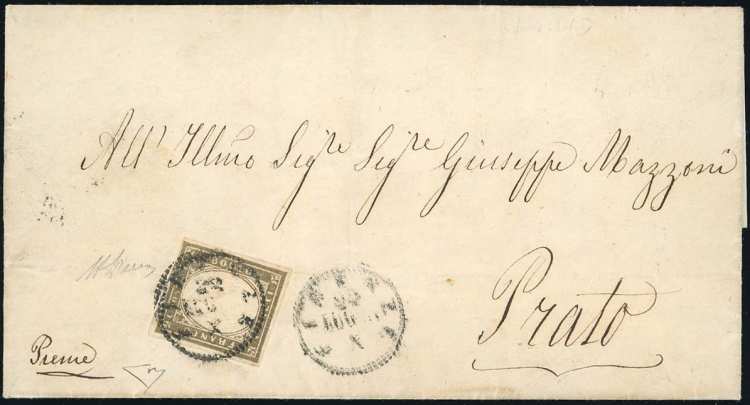 All' Illmo Sig.re Sig.re Giuseppe Mazzoni
Prato
Preme
FIRENZE
LUG
FRANCO